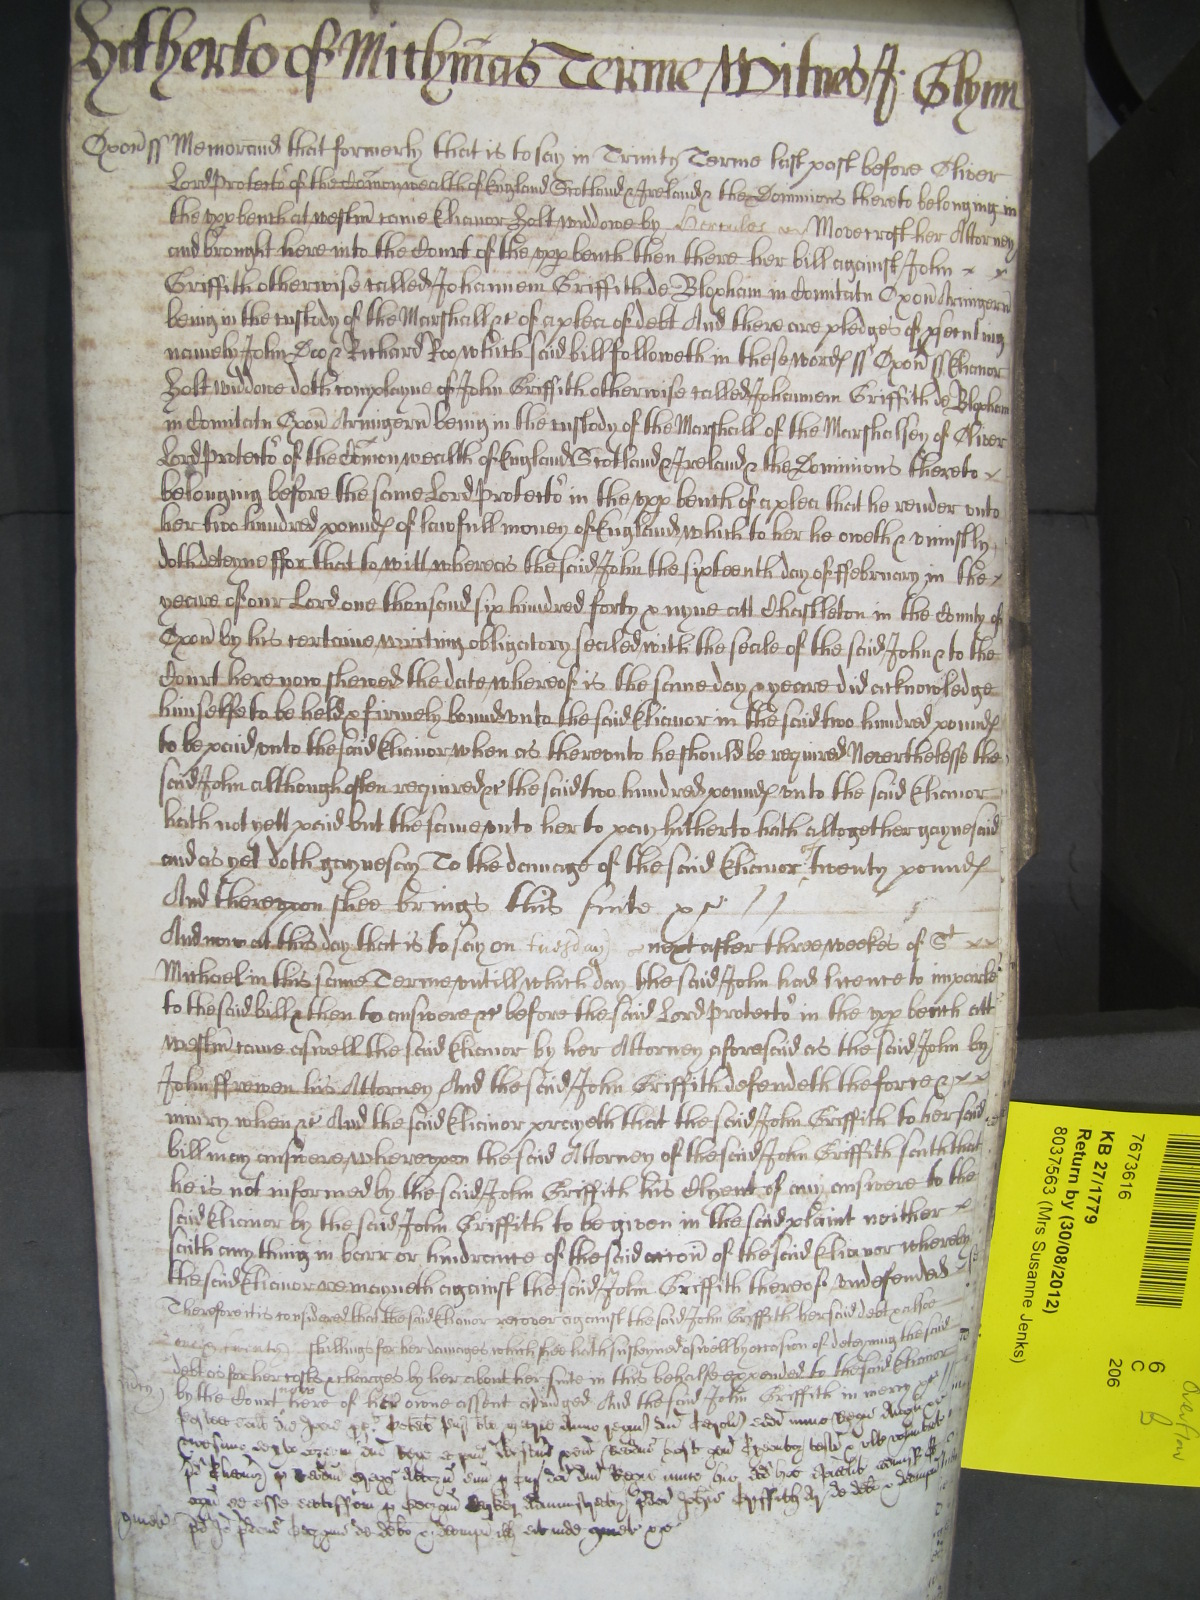 Hitherto of Mich'mas Terme Witnes J: Glynn
Oxon ss Memorand that formerly that is to say in Trinity Terme last past before Oliver
Lord Protector of the Comonwealth of England Scotland & Ireland & the Dominions thereto belonging in
the upp bench at Westm came Elianor Holt widdowe by Hercules Movecroft her Attorney
and brought here into the Court of the upp bench then there her bill against John
Griffith otherwise called Johannem Griffith de Bloxham in Comitatu Oxon Armigerum
being in the custody of the Marshall &c of a plea of debt And there are pledges of psecuting
namely John Doo & Richard Roo which said bill followeth in these words ss Oxon ss Elianor
Holt widdowe doth complayne of John Griffith otherwise called Johannem Griffith de Bloxham
in Comitatu Oxon Armigerum being in the custody of the Marshall of the Marshalsey of Oliver
Lord Protector of the Comonwealth of England Scotland & Ireland & the Dominions thereto
belonging before the same Lord Protector in the upp bench of a plea that he render unto
her two hundred pounds of lawfull money of England which to her he oweth & uniustly
doth deteyne ffor that to witt whereas the said John the sixteenth day of ffebruary in the
yeare of our Lord one thousand six hundred forty & nyne att Chastleton in the County of
Oxon by his certaine writing obligatory sealed with the seale of the said John & to the
Court here now shewed the date whereof is the same day & yeare did acknowledge
himselfe to be held & firmely bound unto the said Elianor in the said two hundred pounds
to be paid unto the said Elianor when as thereunto he should be required Neverthelesse the
said John although often required &c the said two hundred pounds unto the said Elianor
hath not yett paid but the same unto her to pay hitherto hath altogether gaynesaid
and as yet doth gaynesay To the damage of the said Elianor twenty pounds
And thereupon shee brings this suite &c
And now at this day that is to say on tuesday next after three weekes of St
Michael in this same Terme untill which day the said John had licence to imparle
to the said bill & then to answere &c before the said Lord Protector in the upp bench att
Westm came aswell the said Elianor by her Attorney aforesaid as the said John by
John ffrewen his Attorney And the said John Griffith defendeth the force &
iniury when &c And the said Elianor prayeth that the said John Griffith to her said
bill may answere whereupon the said Attorney of the said John Griffith saith that
he is not informed by the said John Griffith his Clyent of any answere to the
said Elianor by the said John Griffith to be given in the said plaint neither
saith any thing in barr or hindrance of the said accon of the said Elianor whereby
the said Elianor remayneth against the said John Griffith thereof undefended
Therefore it is considered that the said Elianor recover against the said John Griffith her said debt & alsoe
shillings for her damages which shee hath susteyned aswell by occasion of deteyning the said
debt as for her costs & charges by her about her suite in this behalfe expended to the said Elianor
by the Court now here of her owne assent adiudged And the said John Griffith in mercy &c
KB 27/1779
Return by (30/08/2012)
8037563 (Mrs Susanne Jenks)
7673616
6
C
206